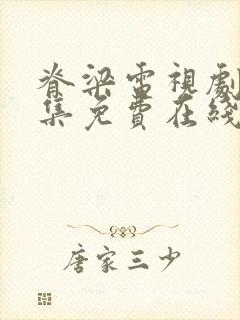 脊梁電視劇
集免費在綫
唐家三少